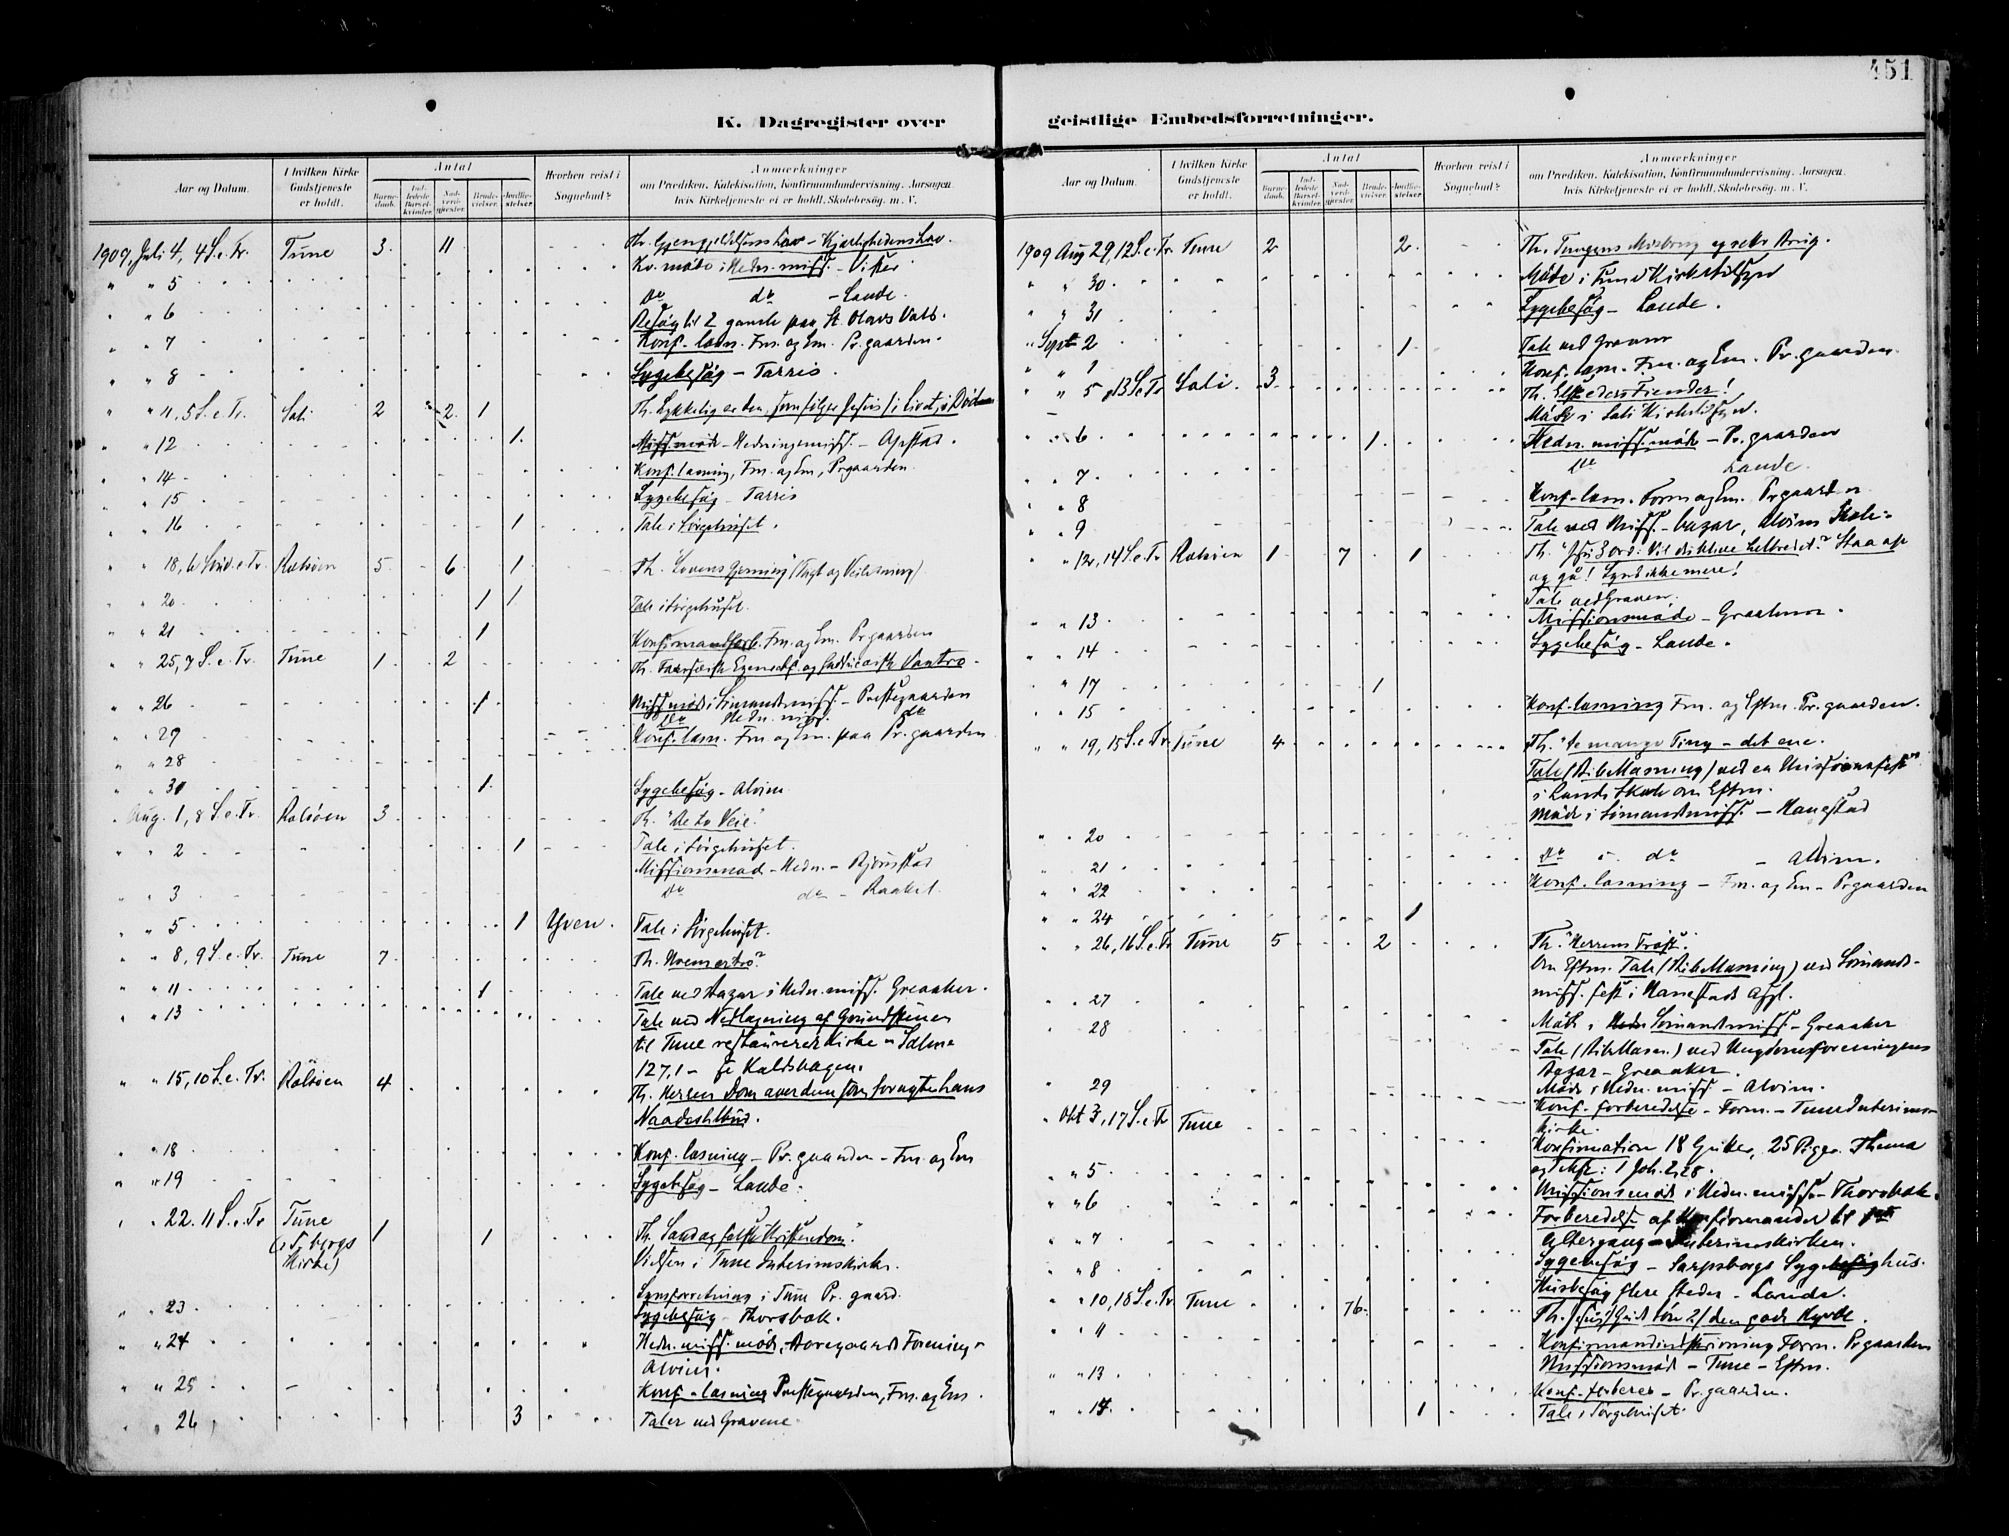 451
K. Dagregister over
Aar og Datum.
I hvilken Kirke Gudstjeneste er holdt.
Antal
Barne-daab.
Ind-ledede Barsel-kvinder.
Nad-verd-gjester.
Brude-vielser.
Jordfæ-stelser.
Hvorhen reist i Sognebud?
Anmærkninger
om Prædiken, Katekisation, Konfirmandundervisning. Aarsagen,
hvis Kirketjeneste ei er holdt, Skolebesøg. m. V.
1909, Juli 4, 4 S. e. Tr. Tune 3 11 Th. Gjengjeldelsens Lov - Kjærlighedens Lov.
" " 5 Kv. møde i Hedn. miss.
" " 6 do do - Lande.
Besøg til 2 gamle paa St. Olavs Vold.
" " 7 Konf.-læsn. Fm. og Em. Pr.gaarden.
" " 8 Sygebesøg - Tarris.
" " 11, 5 S. e. Tr. Soli 2 2 1 Th. Lykkelig er den, som følger Jesus i Livet, i Døden
" " 12 1 Miss.møde - Hedningemiss. - Opstad.
" " 14 Konf. læsning, Fm. og Em, Pr.gaarden.
" " 15 Sygebesøg - Tarris
" " 16 1 Tale i Sørgehuset.
" " 18, 6 Sønd. e. Tr. Rolsøen 5 6 1 Th. "Lovens Gjerning" (Tugt og Veiledning)
" " 20 1 1 Tale i Sørgehuset.
" " 21 1 Konfirmandforb. Fm. og Em. Pr.gaarden
" " 25, 7 S. e. Tr. Tune 1 2 Th. Farisæisk og Sadducæisk Vantro.
" " 26 1 Miss.møde i Sømandsmiss. - Prestegaarden
Do Hedn. miss. do
" " 29 Konf. læsn. Fm og Em. paa Pr.gaarden
" " 28
" " 30 1 Sygebesøg - Alvim
Aug. 1, 8 S. e. Tr. Rolsøen 3 Th. "De to Veie."
" " 2 1 Tale i Sørgehuset.
Missionsmød - Hedn. - Bjørnstad
" " 3 do do - Raakil.
" " 5 1 Yven. Tale i Sørgehuset.
" " 8, 9 S. e. Tr. Tune 7 Th. Hvem er tro?
" " 11 1 Tale ved Bazar i Hedn. miss. Greaaker.
" " 13 Tale ved Nedlægning af Grundstenen
til Tune restaurerede Kirke - Salme
127,1 - fra Kaldshagen.
" " 15, 10 S. e. Tr. Rolsøen 4 Th. Herrens Dom over dem som foragte hans
Naadestilbud.
" " 18 Konf. læsning - Pr.gaarden - Fm. og Em
" " 19 Sygebesøg - Lande.
" " 22. 11 S. e. Tr Tune
(i S.borgs
Kirke) 1 1 Th. Sand og falsk Kristendom".
Vielsen i Tune Interimskirke.
" " 23 Synsforretning i Tune Pr.gaard.
Sygebesøg Thorsbæk.
" " 24 Hedn. miss. møde, Forening -
Alvim.
" " 25 Konf.-læsning Prestegaarden, Fm. og Em.
" " 26 3 Taler ved Gravene.
geistlige Embedsforretninger.
Aar og Datum.
I hvilken Kirke Gudstjeneste er holdt.
Antal
Barne-daab.
Ind-ledede Barsel-kvinder.
Nad-verd-gjester.
Brude-vielser.
Jordfæ-stelser.
Hvorhen reist i Sognebud?
Anmærkninger
om Prædiken, Katekisation, Konfirmandundervisning. Aarsagen,
hvis Kirketjeneste ei er holdt, Skolebesøg. m. V.
1909 Aug 29, 12 S. e. Tr Tune 2 2 Th. Tungens
" " 30 Møde i Tune Kirketilsyn
" " 31 Sygebesøg - Lande.
" Sept 2 1 Tale ved Graven
" " 1 Konf.læsn. Fm. og Em. Pr.gaarden.
" " 5, 13 S. e. Tr Soli. 3 Th. Elsk eders Fiender!
Møde i Soli Kirketilsyn.
" " 6 1 Hedn. miss. møde - Pr.gaarden
" " 7 do Lande.
" " 8 Konf-læsn. Form og Em. Pr.gaarden
" " 9 Tale ved Miss.-bazar, Alvim Skole.
" " 12, 14 S. e. Tr Rolsøen 1 7 1 Th. "Jesu 3 ord: Vil du blive helbredet? Staa op
og gå! Synd ikke mere!
Tale ved Graven.
" " 13 Missionsmøde - Greaaker.
" " 14 Sygebesøg - Lande.
" " 17 1
" " 15 Konf.-læsning Fm. og Eftm. Pr.gaarden.
" " 19, 15 S. e. Tr. Tune 4 Th. "De mange Ting - det ene.
Tale (Bibellæsning) ved en Missionsfest
i Lande Skole om Eftm.
Møde i Sømandsmiss. - Hanestad
" " 20
" " 21 do i do - Alvim.
" " 22 Konf. læsning - Fm. og Em - Pr.gaarden
" " 24 1
" " 26, 16 S. e. Tr Tune 5 2 Th. "Herrens Trøst".
Om Eftm. Tale (Bibellæsning) ved Sømands-
miss. fest i Hanestad
" " 27 Møde i Sømandsmiss. - Greaaker
" " 28 Tale (Bibellæsn.) ved Ungdomsforeningens
Bazar - Greaaker.
" 29 Møde i Hedn. miss. - Alvim.
Konf.-forberedelse - Form. - Tune Interims-
kirke.
" Okt 3, 17 S. e. Tr Tune Konfirmation 18 Gutter, 25 Piger. Thema
og Tekst: 1 Joh. 2,28.
" " 5 Missionsmøde i Hedn. miss. - Thorsbæk.
" " 6 Forberedelse af Konfirmander til
" " 7 Altergang - Interimskirken.
" " 8 Sygebesøg - Sarpsborgs Sygehus.
Husbesøg flere Steder - Lande.
" " 10, 18 S. e. Tr Tune 76 Th. Jesus 1/ Guds Søn 2/ den gode Hyrde.
" " 11 Konfirmandindskrivning Form. Pr.gaarden
Missionsmøde - Tune - Eftm.
" " 13 Konf.-forbered - Pr.gaarden.
" " 14 1 Tale i Sørgehuset.